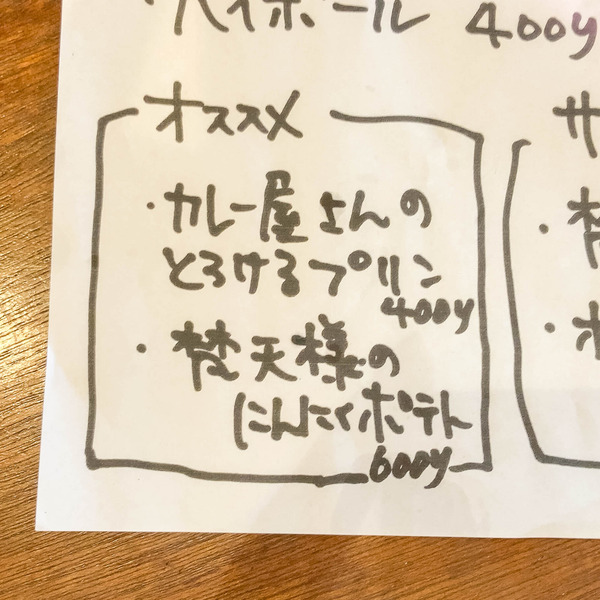 ・ハイボール 400y
オススメ
・カレー屋さんの
とろけるプリン
400y
・梵天様の
にんにくポテト
600y
サ
・梵
・ポ